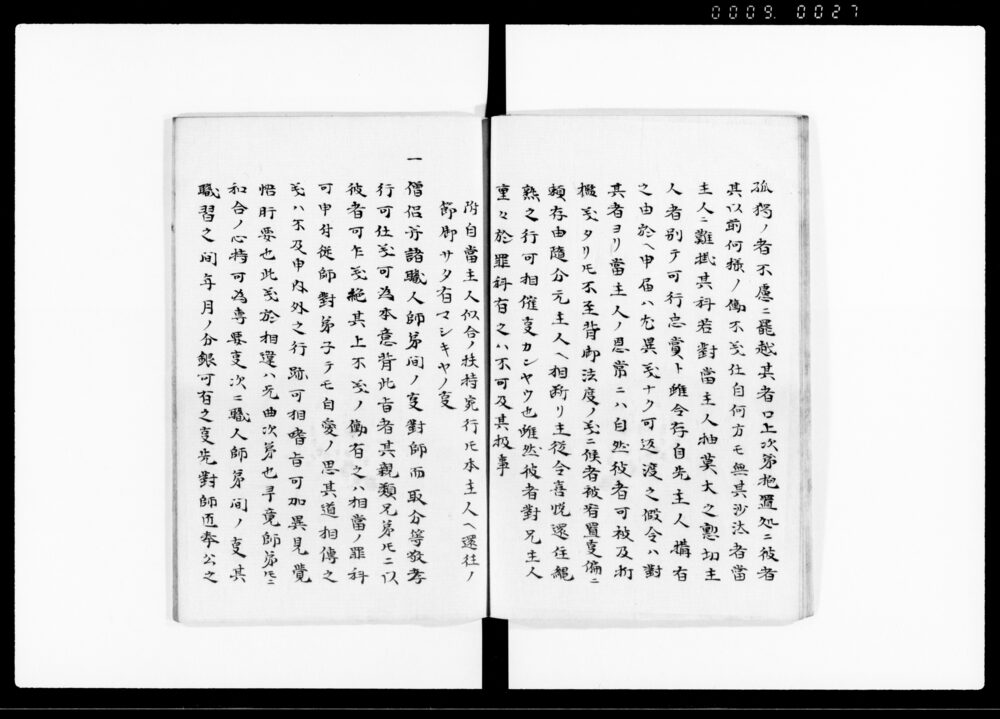 0009.0027
孤獨ノ者不慮ニ罷越其者口上次第抱置処ニ彼者
其以前何様ノ働不義仕自何方モ無其沙汰者當
主人ニ難掛其科若對當主人抽莫大之懇切主
人者別テ可行忠賞ト雖令存自先主人構有
之由於ヘ申届ハ尤異義ナク可返渡之假令ハ對
其者ヨリ當主人ノ恩常ニハ自然彼者可被及折
檻義タリ𪜈不至背御法度ノ義ニ候者被宥置事偏ニ
頼存由隨分元主人ヘ相断リ主従令喜悦還住
熟之行可相催事カンヤウ也雖然彼者對元主人
重々於罪科有之ハ不可及其扱事
附自當主人似合ノ扶持宛行𪜈本主人ヘ還往ノ
節御サタ有マシキヤノ事
一僧侶并諸職人師弟間ノ事對師而取分等敬孝
行可仕義可為本意背此旨者其親類兄弟𪜈ニ以
彼者可乍義絶其上不義ノ働有之ハ相當ノ罪科
可申付従師對弟子テモ自愛ノ思其道相傳之
義ハ不及申内外之行跡可相嗜旨可加異見覚
悟肝要也此義於相違ハ无曲次第也尋竟師弟𪜈ニ
和合ノ心持可為専要事次ニ職人師弟間ノ事其
職習之間年月ノ分銀可有之事先對師匠奉公之